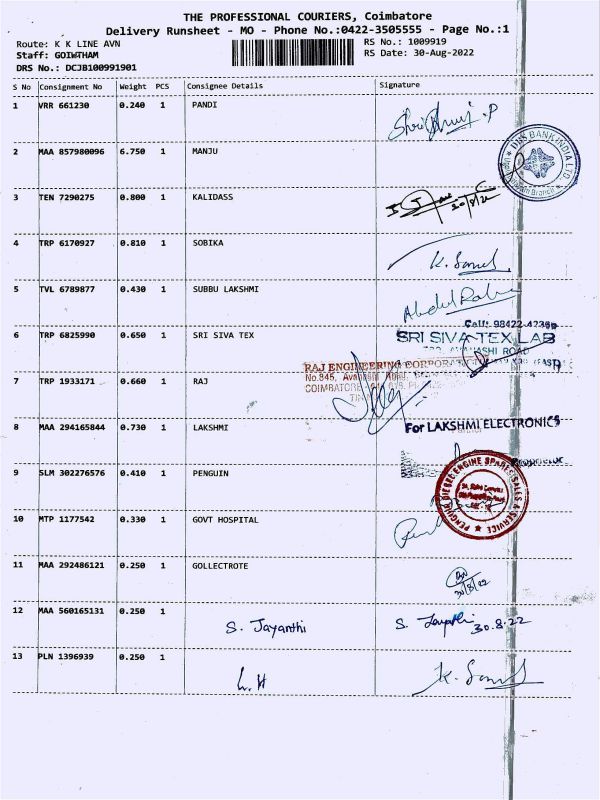 THE PROFESSIONAL COURIERS, Coimbatore
Delivery Runsheet - MO - Phone No.:0422-3505555 - Page No.:1
Route: K K LINE AVN RS No.: 1009919
Staff: GOIWTHAM RS Date: 30-Aug-2022
DRS No.: DCJB100991901
S No Consignment No Weight PCS Consignee Details Signature
1 VRR 661230 0.240 1 PANDI
2 MAA 857980096 6.750 1 MANJU
DBS BANK INDIA LTD.
Branch
3 TEN 7290275 0.800 1 KALIDASS
30/8/22
4 TRP 6170927 0.810 1 SOBIKA
5 TVL 6789877 0.430 1 SUBBU LAKSHMI
Abdul
Cell: 98422
6 TRP 6825990 0.650 1 SRI SIVA TEX SRI SIVA TEX LAB
ROAD
RAJ ENGINEERING CORPORATION
No.845,
7 TRP 1933171 0.660 1 RAJ
COIMBATORE
8 MAA 294165844 0.730 1 LAKSHMI For LAKSHMI ELECTRONICS
Proprietor
9 SLM 302276576 0.410 1 PENGUIN
PENGUIN DIESEL ENGINE SPARES SALES & SERVICE
10 MTP 1177542 0.330 1 GOVT HOSPITAL
11 MAA 292486121 0.250 1 GOLLECTROTE
30/8/22
12 MAA 560165131 0.250 1
S. Jayanthi S. Jayanthi 30.8.22
13 PLN 1396939 0.250 1